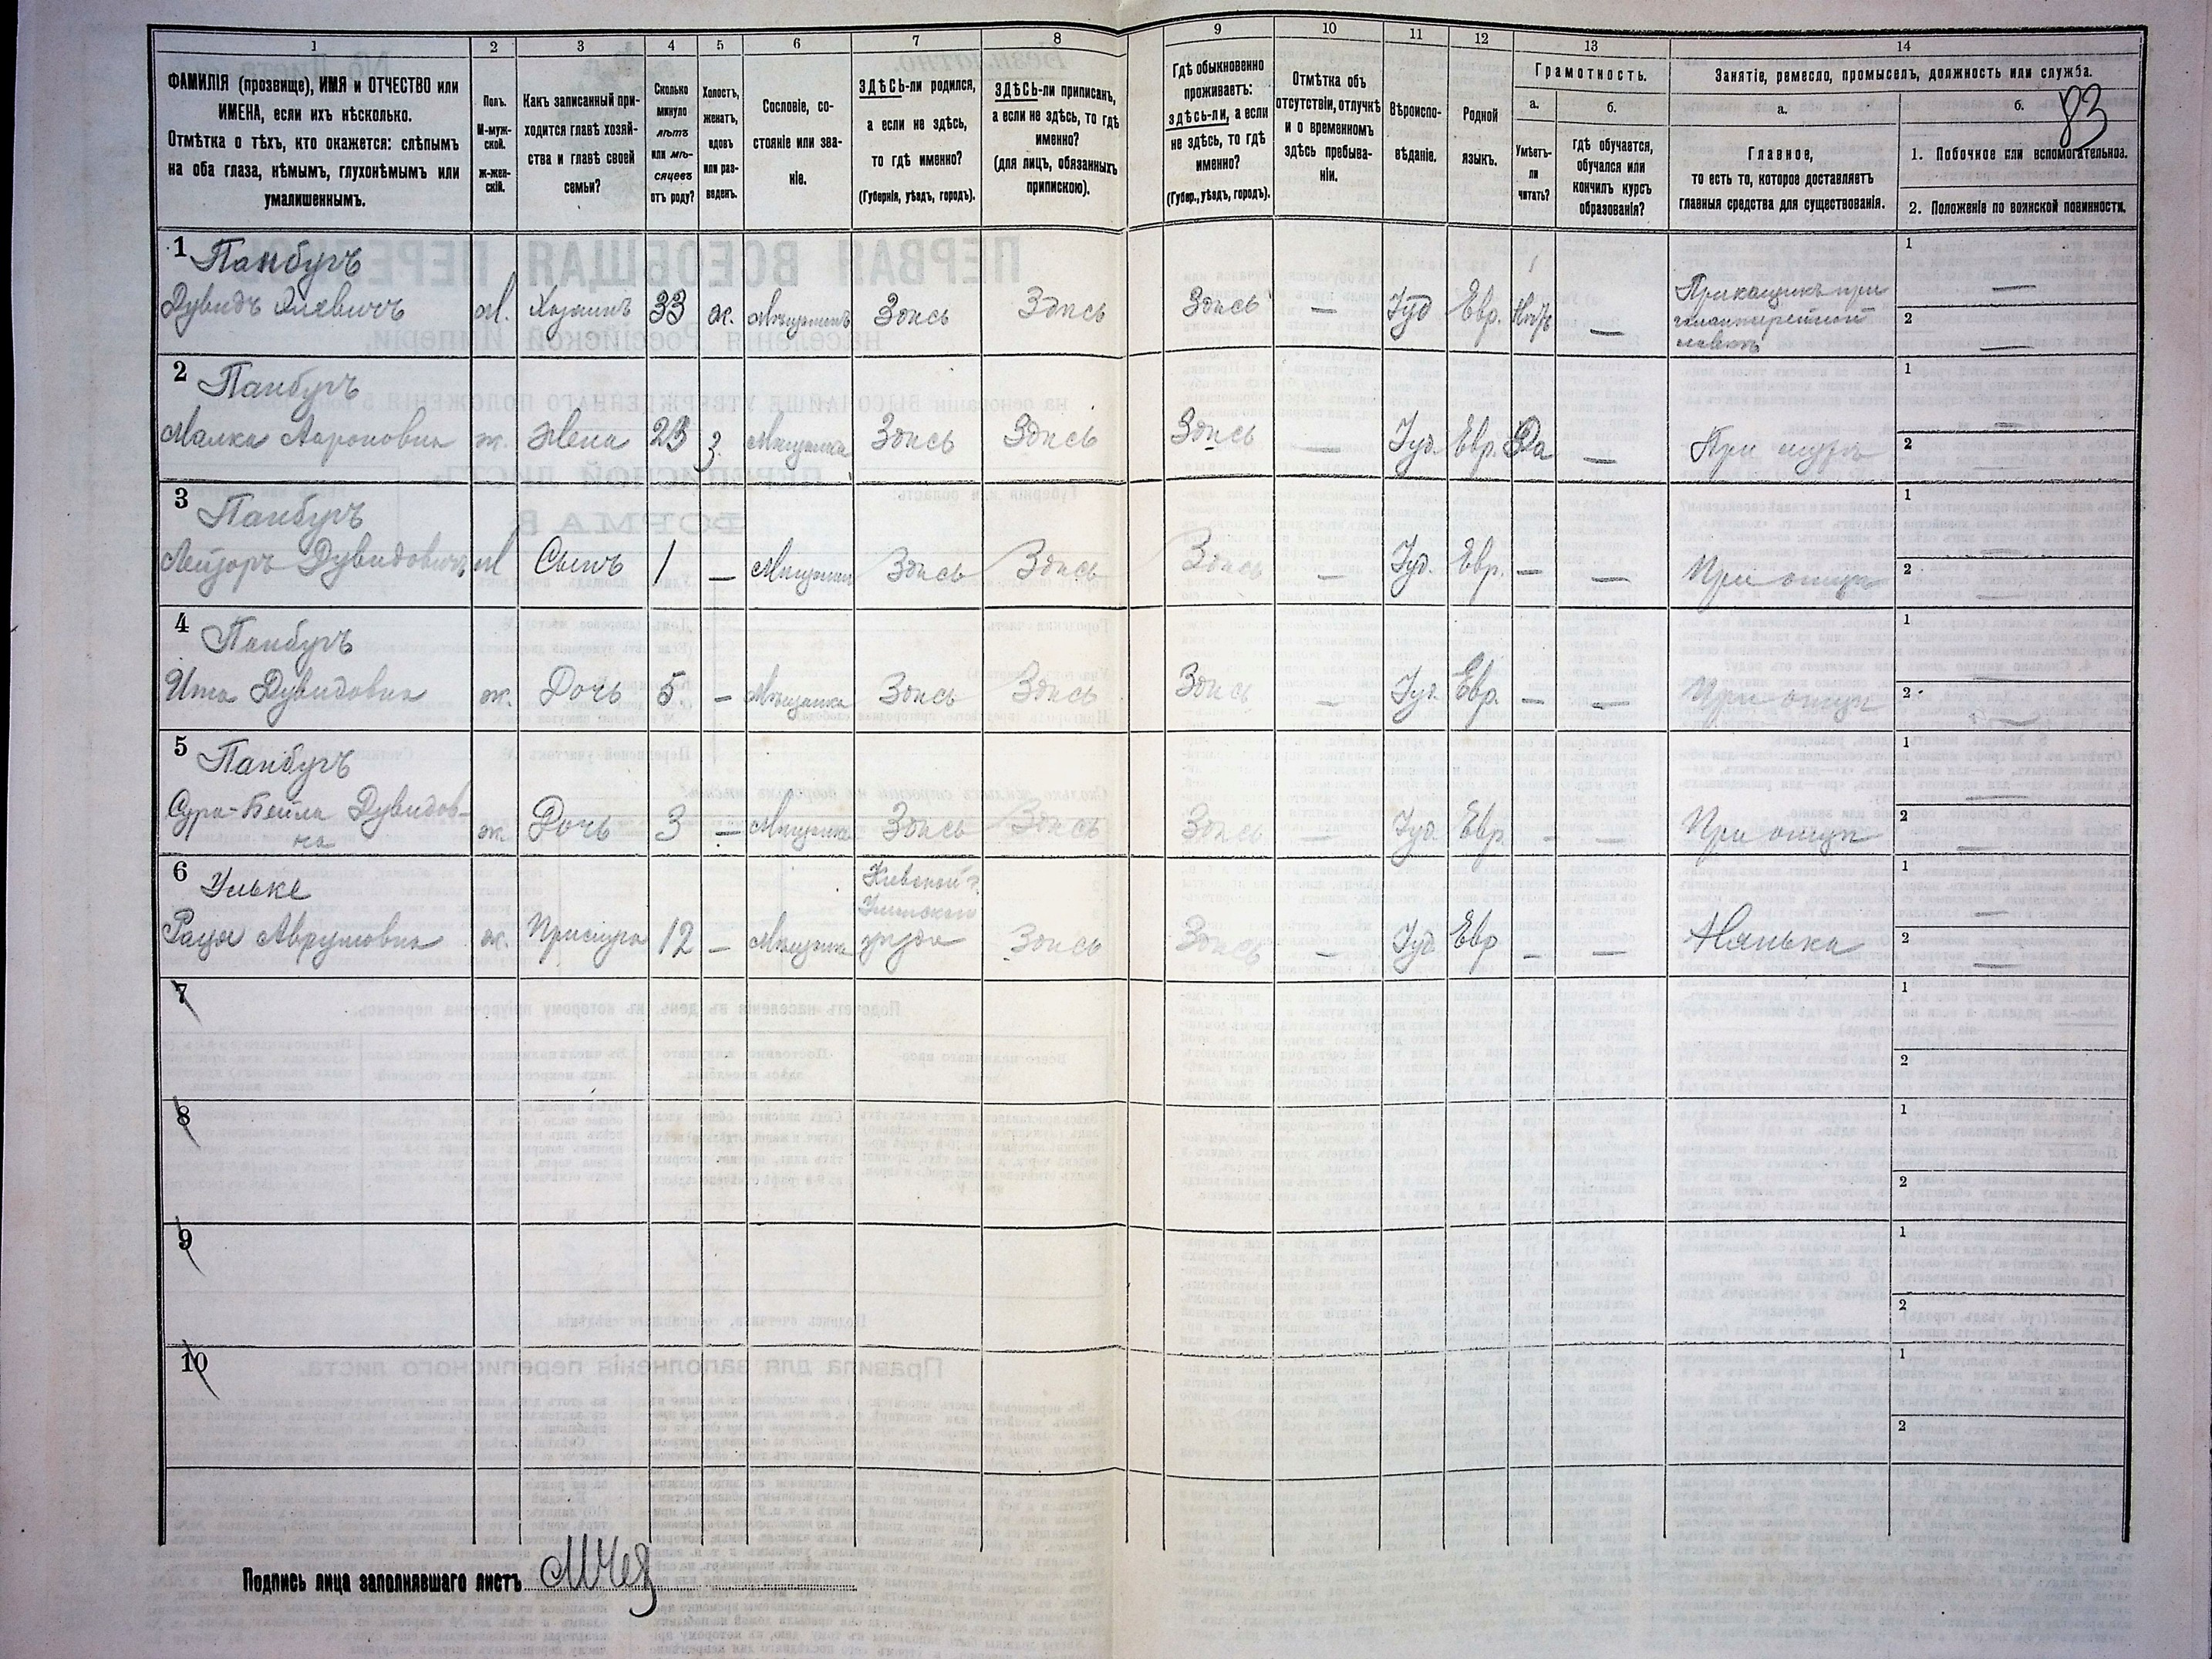 1
2
3
4
5
6
7
8
9
10
11
12
13
14
ФАМИЛІЯ (прозвище), ИМЯ и ОТЧЕСТВО или
ИМЕНА, если ихъ нѣсколько.
Отмѣтка о тѣхъ, кто окажется: слѣпымъ
на оба глаза, нѣмымъ, глухонѣмымъ или
умалишеннымъ.
Полъ.
М-муж-
ской.
Ж-жен-
скій.
Какъ записанный при-
ходится главѣ хозяй-
ства и главѣ своей
семьи?
Сколько
минуло
лѣтъ
или мѣ-
сяцевъ
отъ роду?
Холостъ,
женатъ,
вдовъ
или раз-
веденъ.
Сословіе, со-
стояніе или зва-
ніе.
ЗДѢСЬ-ли родился,
а если не здѣсь,
то гдѣ именно?
(Губернія, уѣздъ, городъ).
ЗДѢСЬ-ли приписанъ,
а если не здѣсь, то гдѣ
именно?
(для лицъ, обязанныхъ
припискою).
Гдѣ обыкновенно
проживаетъ:
здѣсь-ли, а если
не здѣсь, то гдѣ
именно?
(Губер., уѣздъ, городъ).
Отмѣтка объ
отсутствіи, отлучкѣ
и о временномъ
здѣсь пребыва-
ніи.
Вѣроиспо-
вѣданіе.
Родной
языкъ.
Грамотность.
а.
Умѣетъ-
ли
читать?
б.
Гдѣ обучается,
обучался или
кончилъ курсъ
образованія?
Занятіе, ремесло, промыселъ, должность или служба.
а.
Главное,
то есть то, которое доставляетъ
главныя средства для существованія.
б.
83
1. Побочное или вспомогательное.
2. Положеніе по воинской повинности.
1 Панбургъ
Дувидъ м. Хозяинъ 33 ж. Мѣщанинъ Здѣсь Здѣсь Здѣсь — Іуд Евр. Нѣтъ — Прикащикъ при
галантерейной
лавкѣ
1 —
2 —
2 Панбургъ
Малка Ароновна ж. Жена 23 з. Мѣщанка Здѣсь Здѣсь Здѣсь — Іуд. Евр. Да — При мужѣ
1 —
2 —
3 Панбургъ
Лейзоръ Дувидовичъ м Сынъ 1 — Мѣщанинъ Здѣсь Здѣсь Здѣсь — Іуд. Евр. — — При отцѣ
1 —
2 —
4 Панбургъ
Ита Дувидовна ж. Дочь 5 — Мѣщанка Здѣсь Здѣсь Здѣсь — Іуд. Евр. — — При отцѣ
1 —
2 —
5 Панбургъ
Сура-Бейла Дувидов-
на ж. Дочь 3 — Мѣщанка Здѣсь Здѣсь Здѣсь — Іуд. Евр. — — При отцѣ
1 —
2 —
6
Аврумовна ж. Прислуга 12 — Мѣщанка Кіевской г.
уѣзда Здѣсь Здѣсь — Іуд. Евр — — Нянька
1 —
2 —
7
1
2
8
1
2
9
1
2
10
1
2
Подпись лица заполнявшаго листъ